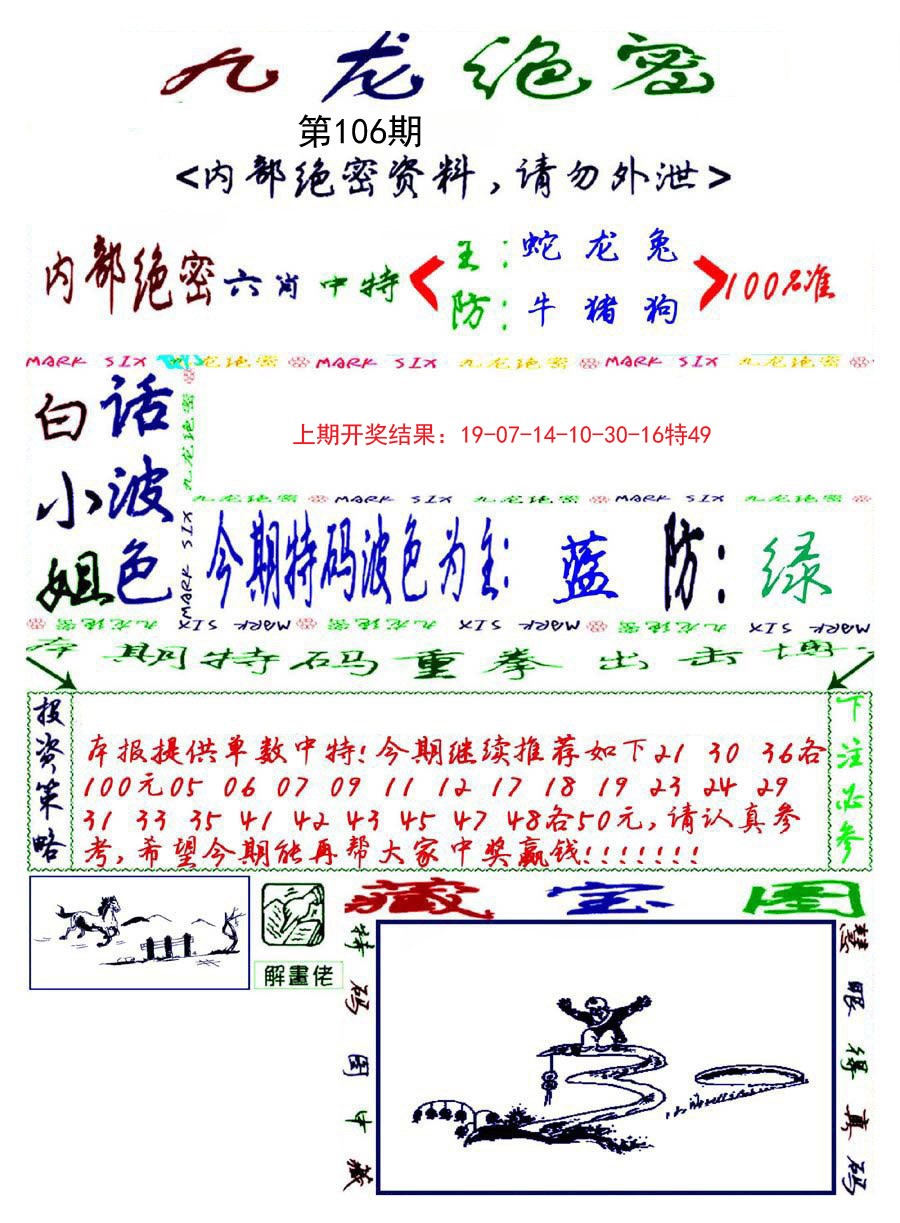 九龙绝密
第106期
<内部绝密资料,请勿外泄>
内部绝密六肖中特
主:蛇龙兔
防:牛猪狗
100%准
MARK SIX 九龙绝密 MARK SIX 九龙绝密 MARK SIX 九龙绝密
白小姐
话波色
九龙绝密
MARK SIX
上期开奖结果：19-07-14-10-30-16特49
九龙绝密 MARK SIX 九龙绝密 MARK SIX 九龙绝密
今期特码波色为主: 蓝 防: 绿
九龙绝密 MARK SIX 九龙绝密 MARK SIX 九龙绝密 MARK SIX
本期特码重拳出击博
投资策略
本报提供单数中特!今期继续推荐如下21 30 36各
100元05 06 07 09 11 12 17 18 19 23 24 29
31 33 35 41 42 43 45 47 48各50元,请认真参
考,希望今期能再帮大家中奖赢钱!!!!!!!
下注必参
解畫佬
藏宝图
特码图中藏
慧眼得真码